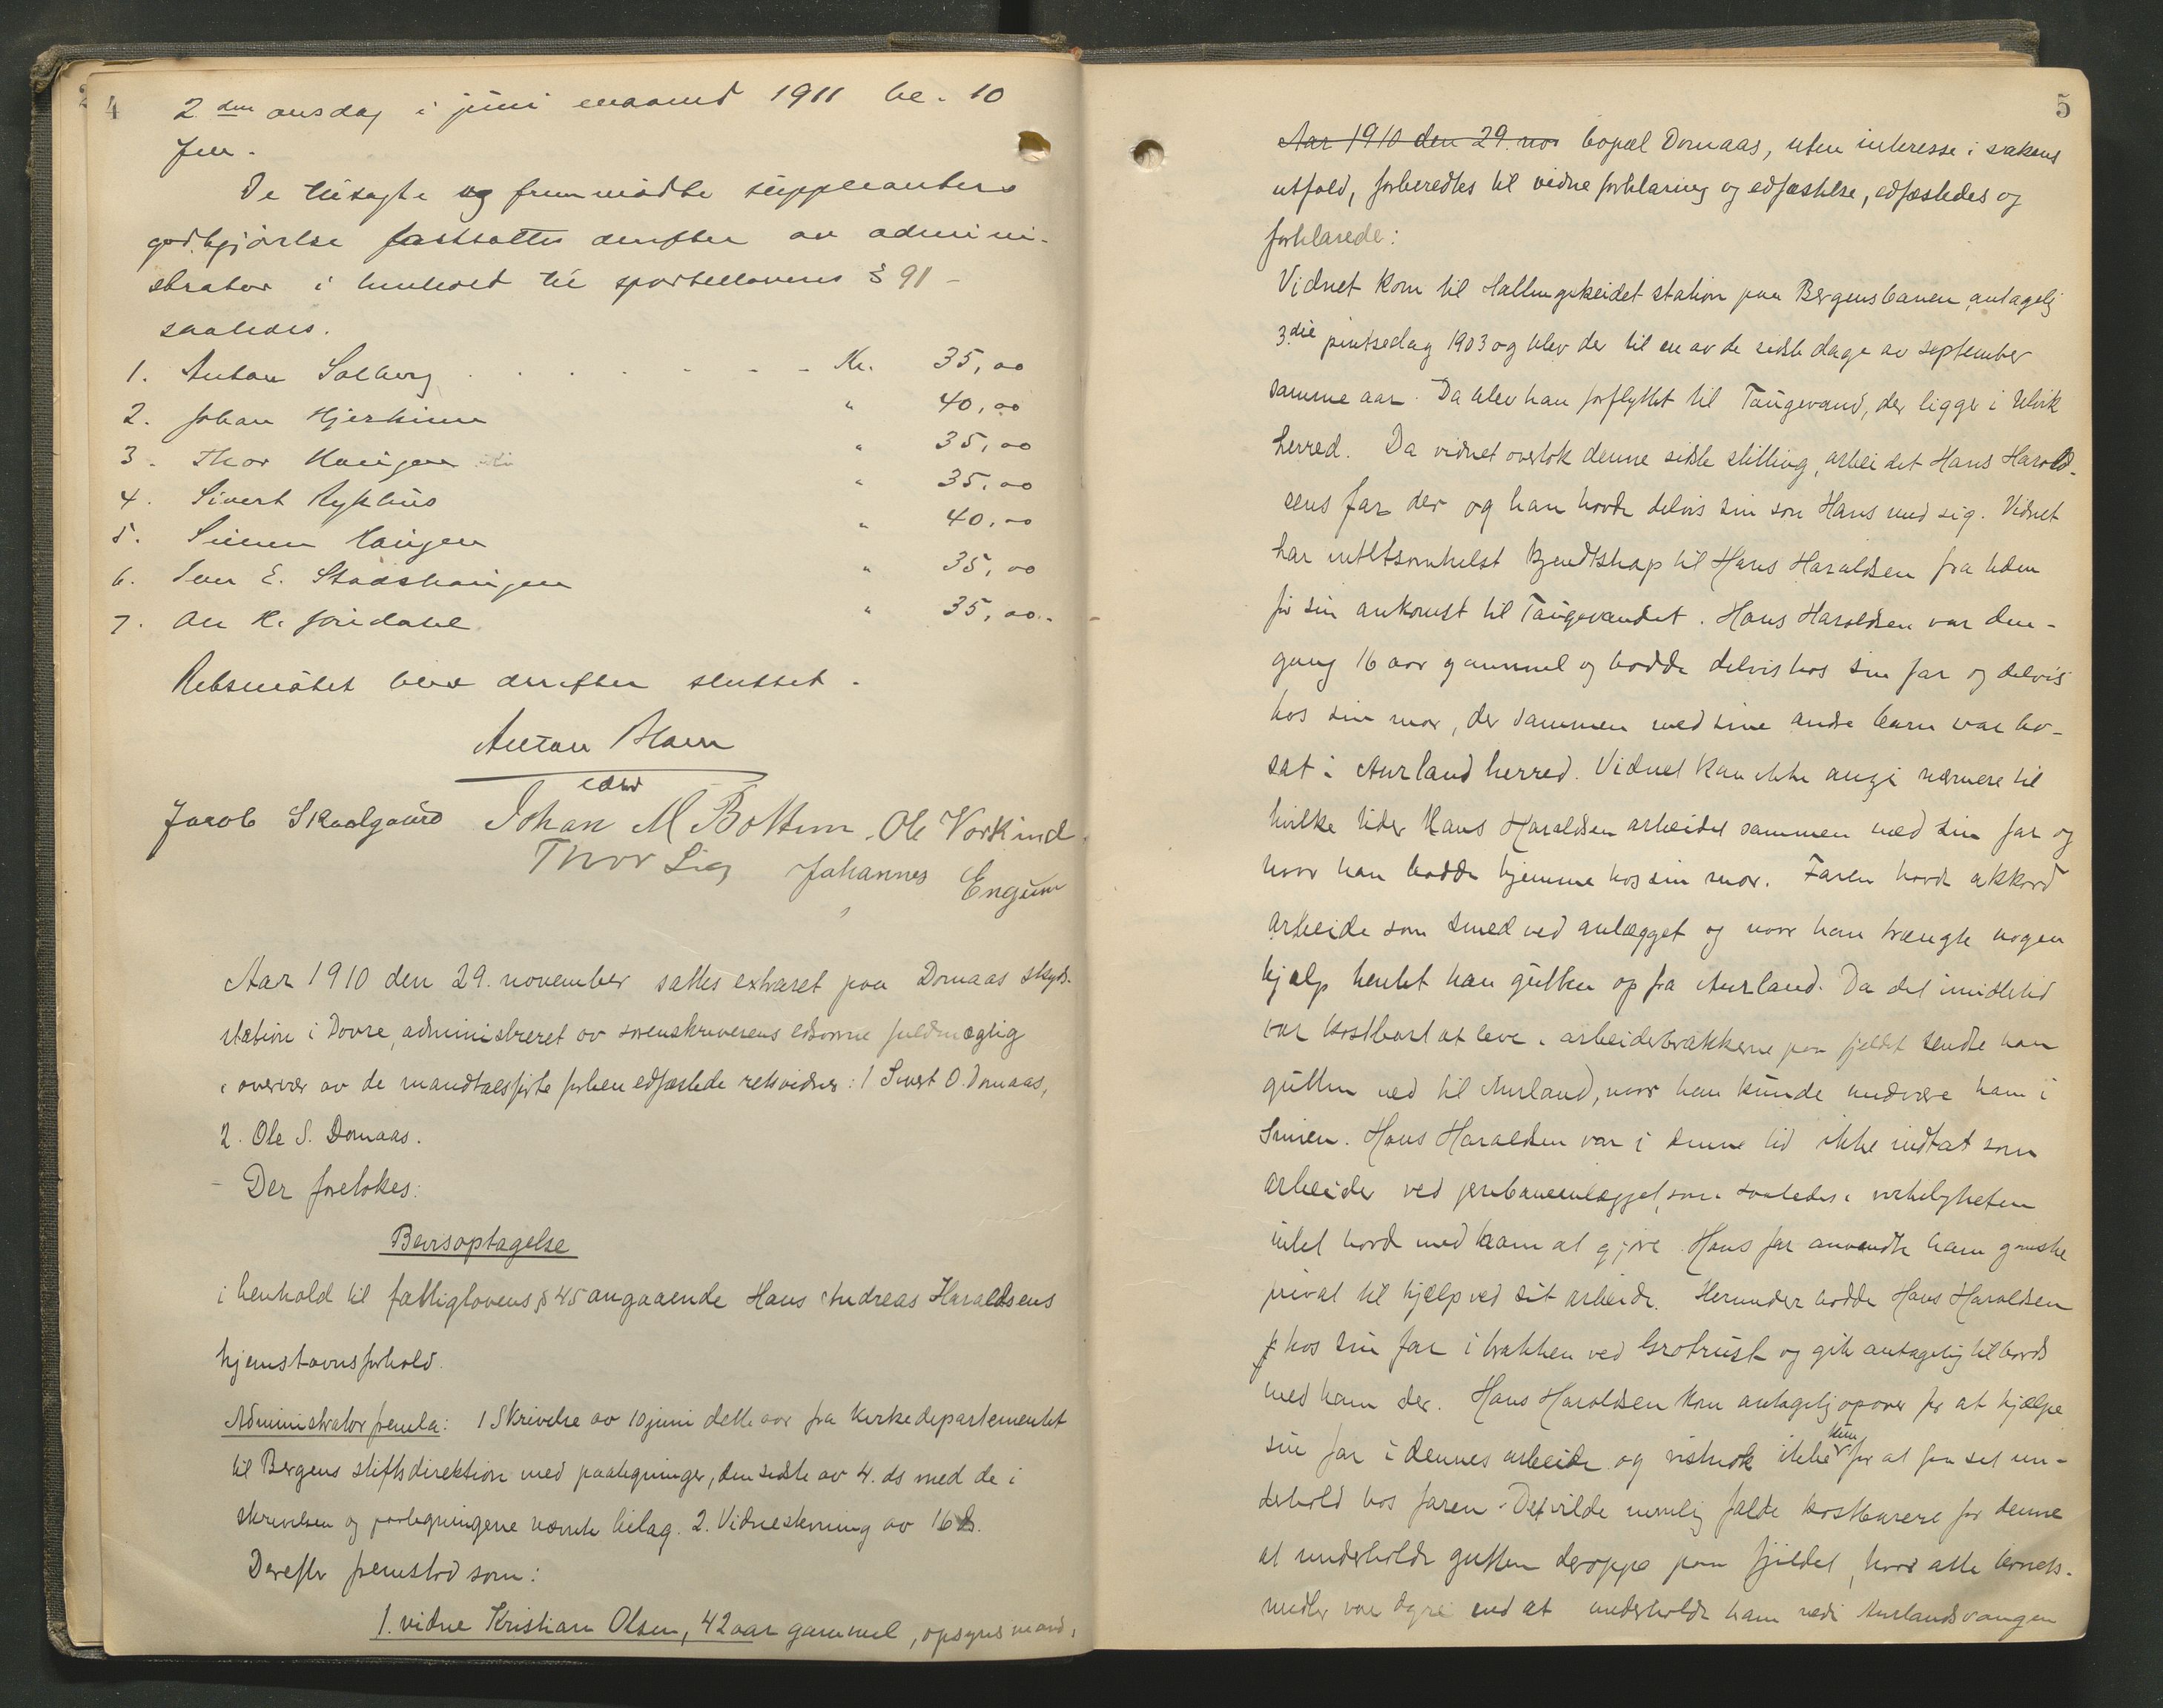 4
2den onsdag i juni maaned 1911 kl. 10
fm.
De tilsagte og fremmødte suppleanters
godtgjørelse fastsattes derefter av admini-
strator i henhold til sportellovens § 91 –
saaledes.
1. Anton Solberg . . . . . . Kr. 35,00
2. Johan Hjerkinn " 40,00
3. Thor Haugen " 35,00
4. Sivert Ryphus " 35,00
5. Simen Haugen " 40,00
6. Iver E. Stadshaugen " 35,00
7. Ole K. Jøndahl " 35,00.
Retsmøtet blev derefter sluttet.
Anton Blom
edsv
Jacob Skaalgaard Johan M Bottem. Ole Vorkind.
Thor Lie Johannes Engum
Aar 1910 den 29. november sattes extraret paa Domaas skyds-
station i Dovre, administreret av sorenskriverens edsvorne fuldmægtig
i overvær av de mandtalsførte forhen edfæstede retsvidner: 1 Sivert O. Domaas,
2. Ole S. Domaas.
Der foretokes:
Bevisoptagelse
i henhold til fattiglovens § 45 angaaende Hans Andreas Haraldsens
hjemstavnsforhold.
Administrator fremla: 1 Skrivelse av 10 juni dette aar fra Kirkedepartementet
til Bergens stiftsdirektion med paategninger, den sidste av 4. ds med de i
skrivelsen og paategningene nævnte bilag. 2. Vidnestevning av 16 ds.
Derefter fremstod som:
1. vidne Kristian Olsen, 42 aar gammel, opsynsmand,
5
Aar 1910 den 29. nov bopæl Domaas, uten interesse i sakens
utfald, forberedtes til vidneforklaring og edfæstelse, edfæstedes og
forklarede:
Vidnet kom til Hallingskeidet station paa Bergensbanen antagelig
3.die pintsedag 1903 og blev der til en av de sidste dage av september
samme aar. Da blev han forflyttet til Taugevand, der ligger i Ulvik
herred. Da vidnet overtok denne sidste stilling, arbeidet Hans Harald-
sens far der og han havde delvis sin søn Hans med sig. Vidnet
har intetsomhelst kjendtskap til Hans Haraldsen fra tiden
før sin ankomst til Taugevandet. Hans Haraldsen var den-
gang 16 aar gammel og bodde delvis hos sin far og delvis
hos sin mor, der sammen med sine andre barn var bo-
sat i Aurland herred. Vidnet kan ikke angi nærmere til
hvilke tider Hans Haraldsen arbeidet sammen med sin far og
hvor han bodde hjemme hos sin mor. Faren havde akkord
arbeide som smed ved anlægget og naar han trængte nogen
hjælp hentet han gutten op fra Aurland. Da det imidlertid
var kostbart at leve i arbeiderbrakkerne paa fjeldet sendte han
gutten ned til Aurland, naar han kunde undvære ham i
Smien. Hans Haraldsen var i denne tid ikke indtat som
arbeider ved jernbaneanlægget, som saaledes i virkeligheten
intet havde med ham at gjøre. Hans far anvendte ham ganske
privat til hjælp ved sit arbeide. Herunder bodde Hans Haraldsen
hos sin far i brakken ved Grotrust og gik antagelig til bords
med ham der. Hans Haraldsen kom antagelig opover for at hjælpe
sin far i dennes arbeide og vistnok ikke kun for at faa sit un-
derhold hos faren. Det vilde nemlig falde kostbarere for denne
at underholde gutten deroppe paa fjeldet, hvor alle levnets-
midler var dyre end at underholde ham nede i Aurlandsvangen